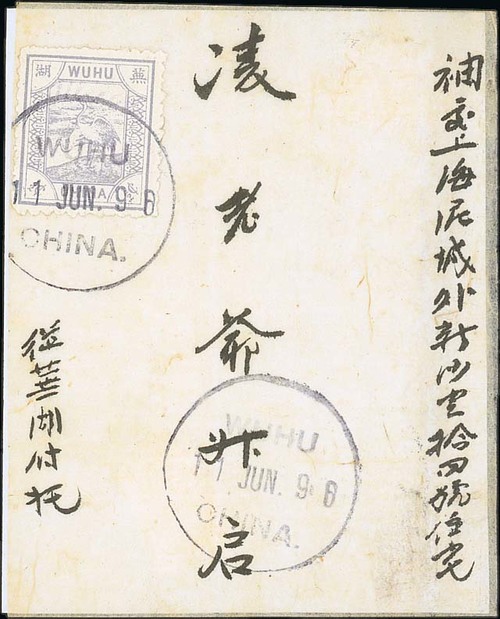 袖交上海泥城外新沙
拾四號住宅
凌老爺升启
從蕪湖付托
湖 WUHU 蕪
WUHU
11 JUN. 96
CHINA.
WUHU
11 JUN. 96
CHINA.